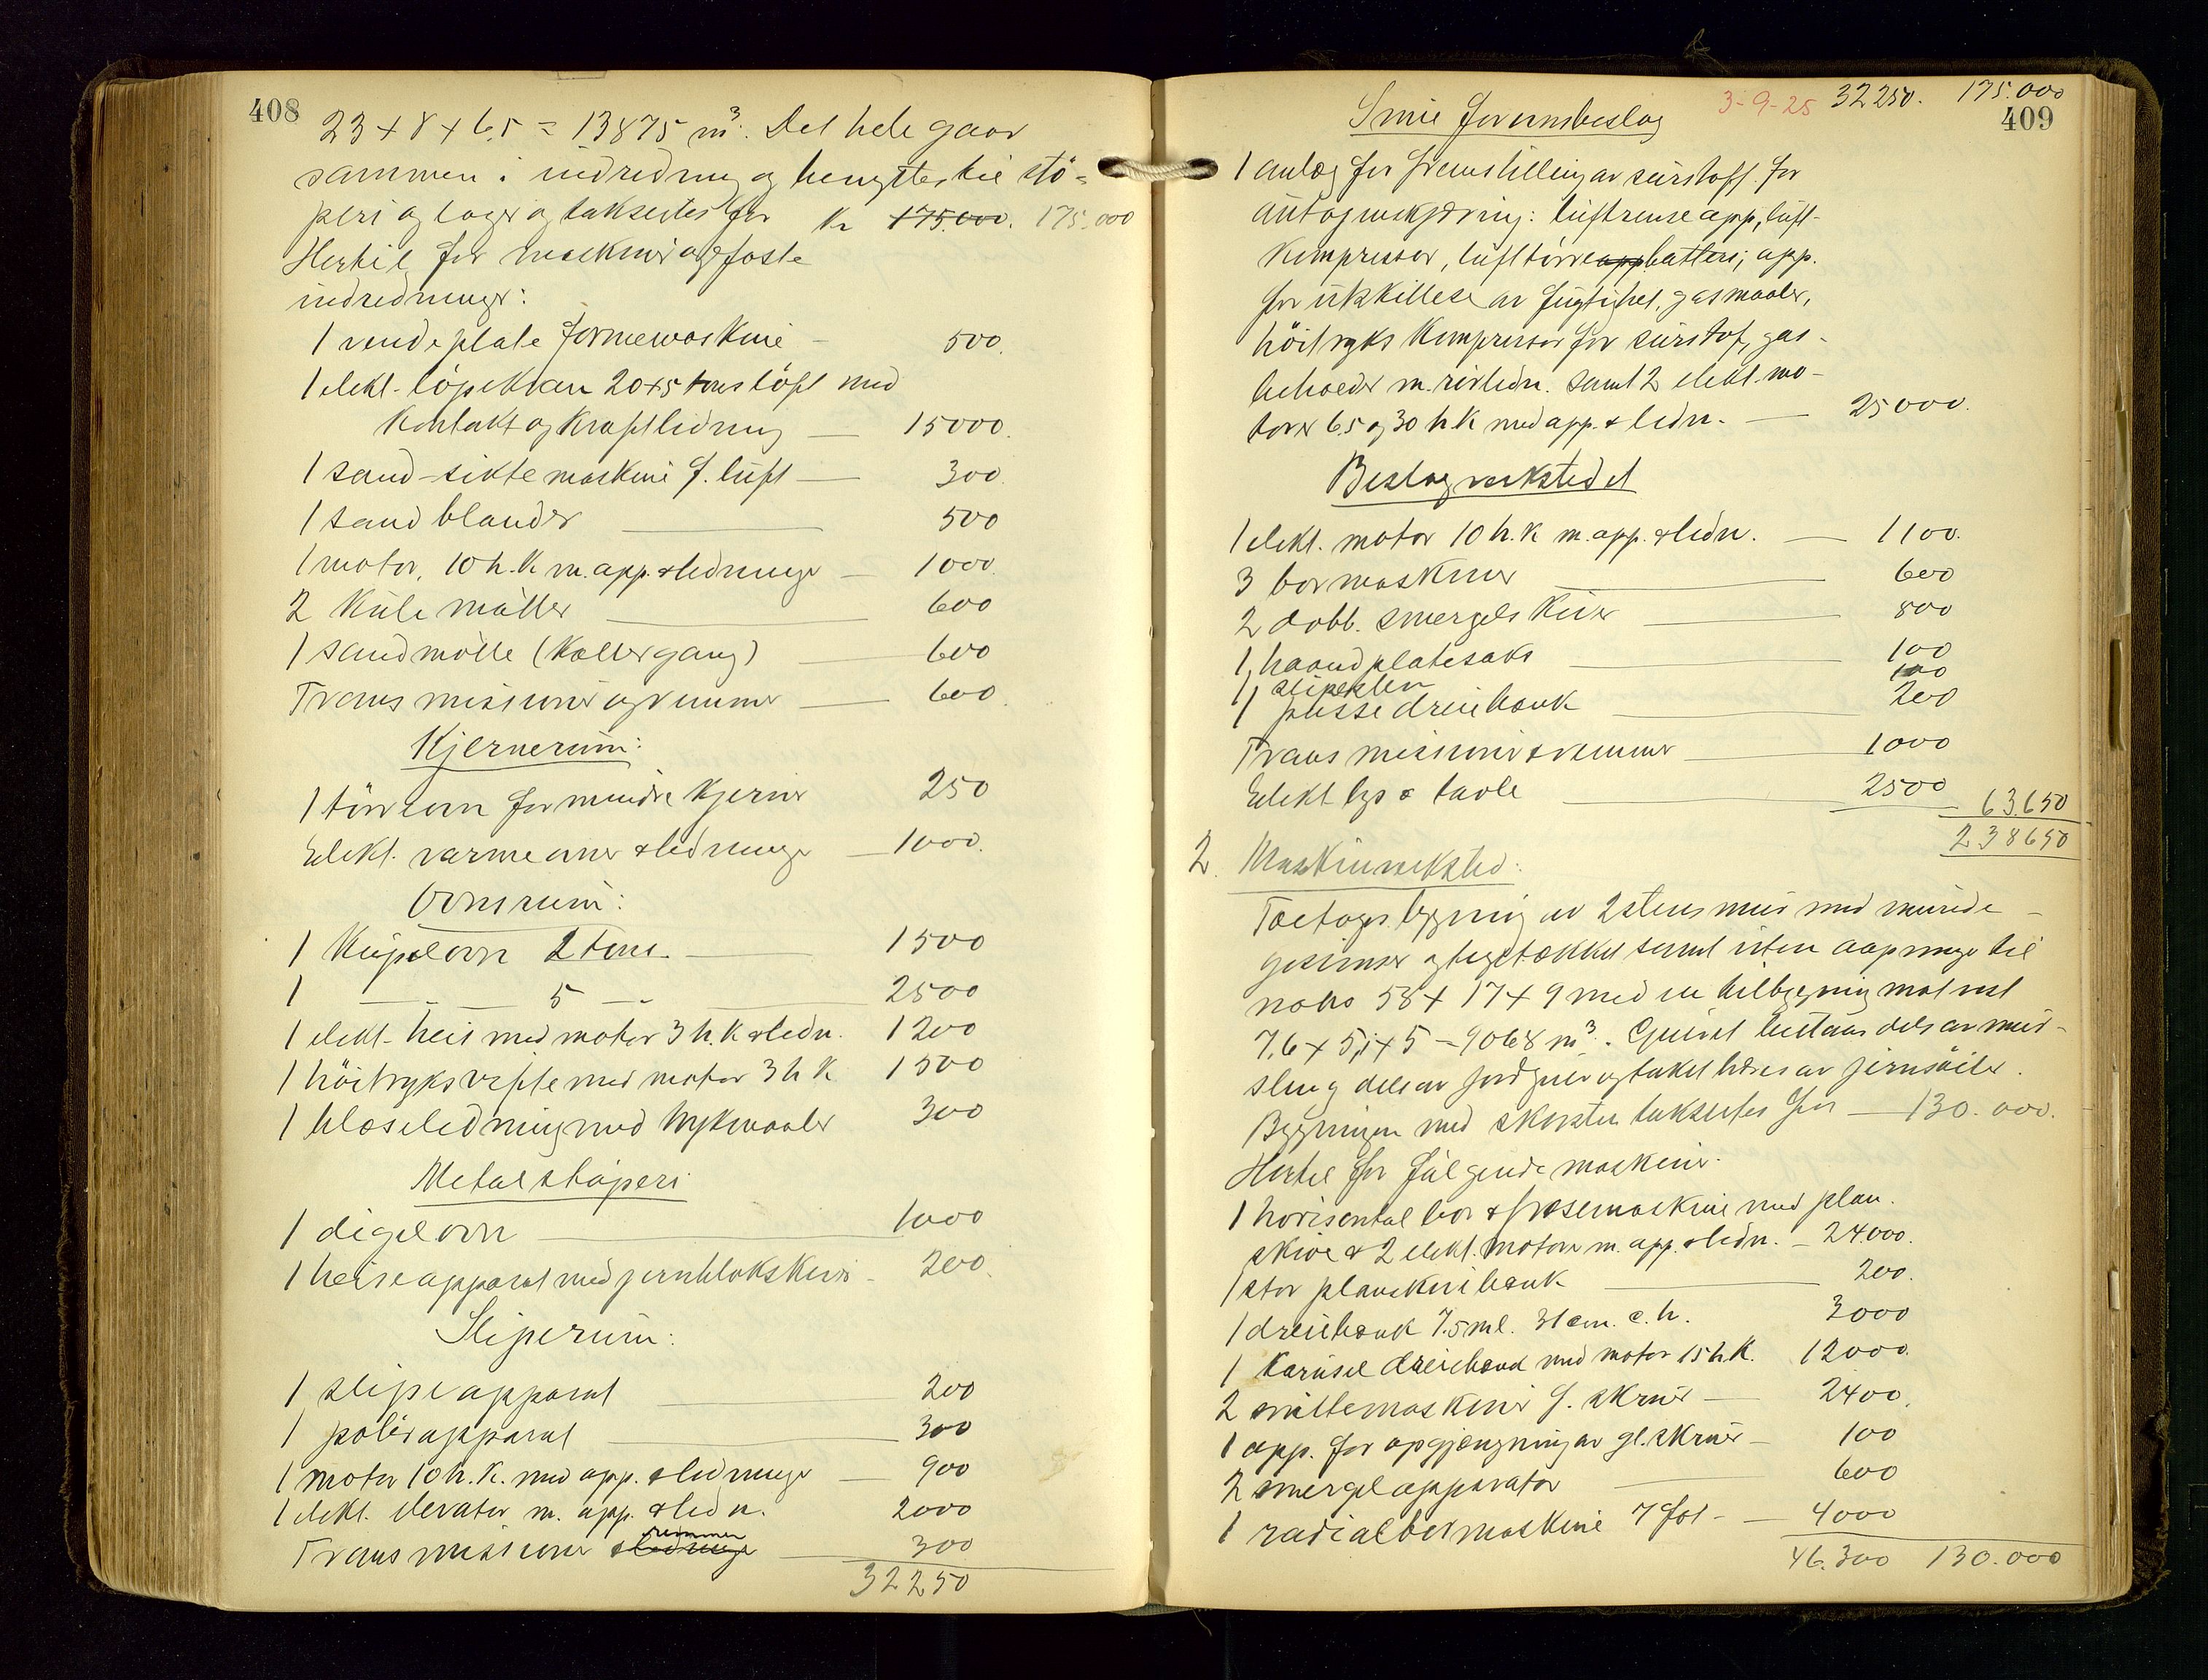 408
23 + 8 + 6,5 = 13875 m³. Det hele gaar
sammen i indredning og benyttes til stö-
peri og lager og takseres for Kr 175.000. 175.000
Hertil for maskiner og faste
indredninger:
1 vendeplate formemaskine – 500.
1 elekt. löpekran 20+5 tons löft med
kontakt og kraftledning — 15000.
1 sand-sikte maskine f. luft — 300.
1 sandblander — 500
1 motor, 10 h.k m. app. & ledninger — 1000.
2 Kule möller — 600
1 sandmölle (Kollergang) 600
Transmissioner og remmer — 600.
Kjernerum:
1 törreovn for mindre kjerner 250
Elekt. varmeovner & ledninger — 1000.
Ovnsrum:
1 Kupolovn 2 tons. — 1500
1 — " — 5 — " — 2500
1 elekt. heis med motor 3 h.k & ledn. 1200
1 höitryksvifte med motor 3 h k 1500
1 blaseledning med trykmaaler 300
Metalstöperi
1 digelovn — 1000
1 heiseapparat med jernblokskiver – 200.
Sliperum:
1 slipeapparat — 200
1 polerapparat — 300
1 motor 10 h.k. med app. & ledninger — 900
1 elekt. elevator m. app. & ledn. 2000
remmer
Transmissioner & ledninger — 300
32250
3-9-25 32250. 175.000
409
Smie for vinnsbeslag
1 anlæg for fremstilling av surstoff for
autogenskjæring: luftrenseapp., luft-
kompressor, lufttörreapp batteri, app.
for utskillelse av fugtighet, gasmaaler,
höitryks kompressor for surstof, gas-
beholder m. rörledn. samt 2 elekt. mo-
torer 6.5 og 30 h k med app. & ledn. — 25000.
Beslagverkstedet
1 elekt. motor 10 h.k m. app. & ledn. — 1100.
3 bormaskiner — 600
2 dobb. smergelskiver — 800
1 haandplatesaks — 100
1 slipesten 100
1 pussedreiebænk — 200
Transmissioner & remmer — 1000
Elekt lys & tavle — 2500 63.650
238650
2. Maskinverksted:
Toetages bygning av 2 stens mur med murede
gesimser og teglstækket samt uten aapninger til
nabo 58 + 17 + 9 med en tilbygning mot vest
7,6 + 5,1 + 5 = 9068 m³. Gulvet bestaar dels av mur-
sten og dels av jordgulv og taket bæres av jernsöiler.
Bygningen med skorsten takseres for — 130.000.
Hertil for fölgende maskiner:
1 horisontal bor & fræsemaskine med plan-
skive & 2 elekt. motorer m. app. & ledn. – 24000.
1 stor planskivebænk — 200.
1 dreiebænk 7.5 ml. 31 cm. c. h. 3000
1 Karusel dreiebænk med motor 15 h.k. 12000.
2 snittemaskiner f. skruer — 2400.
1 app. for opgjængning av gl. skruer – 100
2 smergelapparater — 600
1 radialbormaskine 7 fot — 4000
46.300 130.000